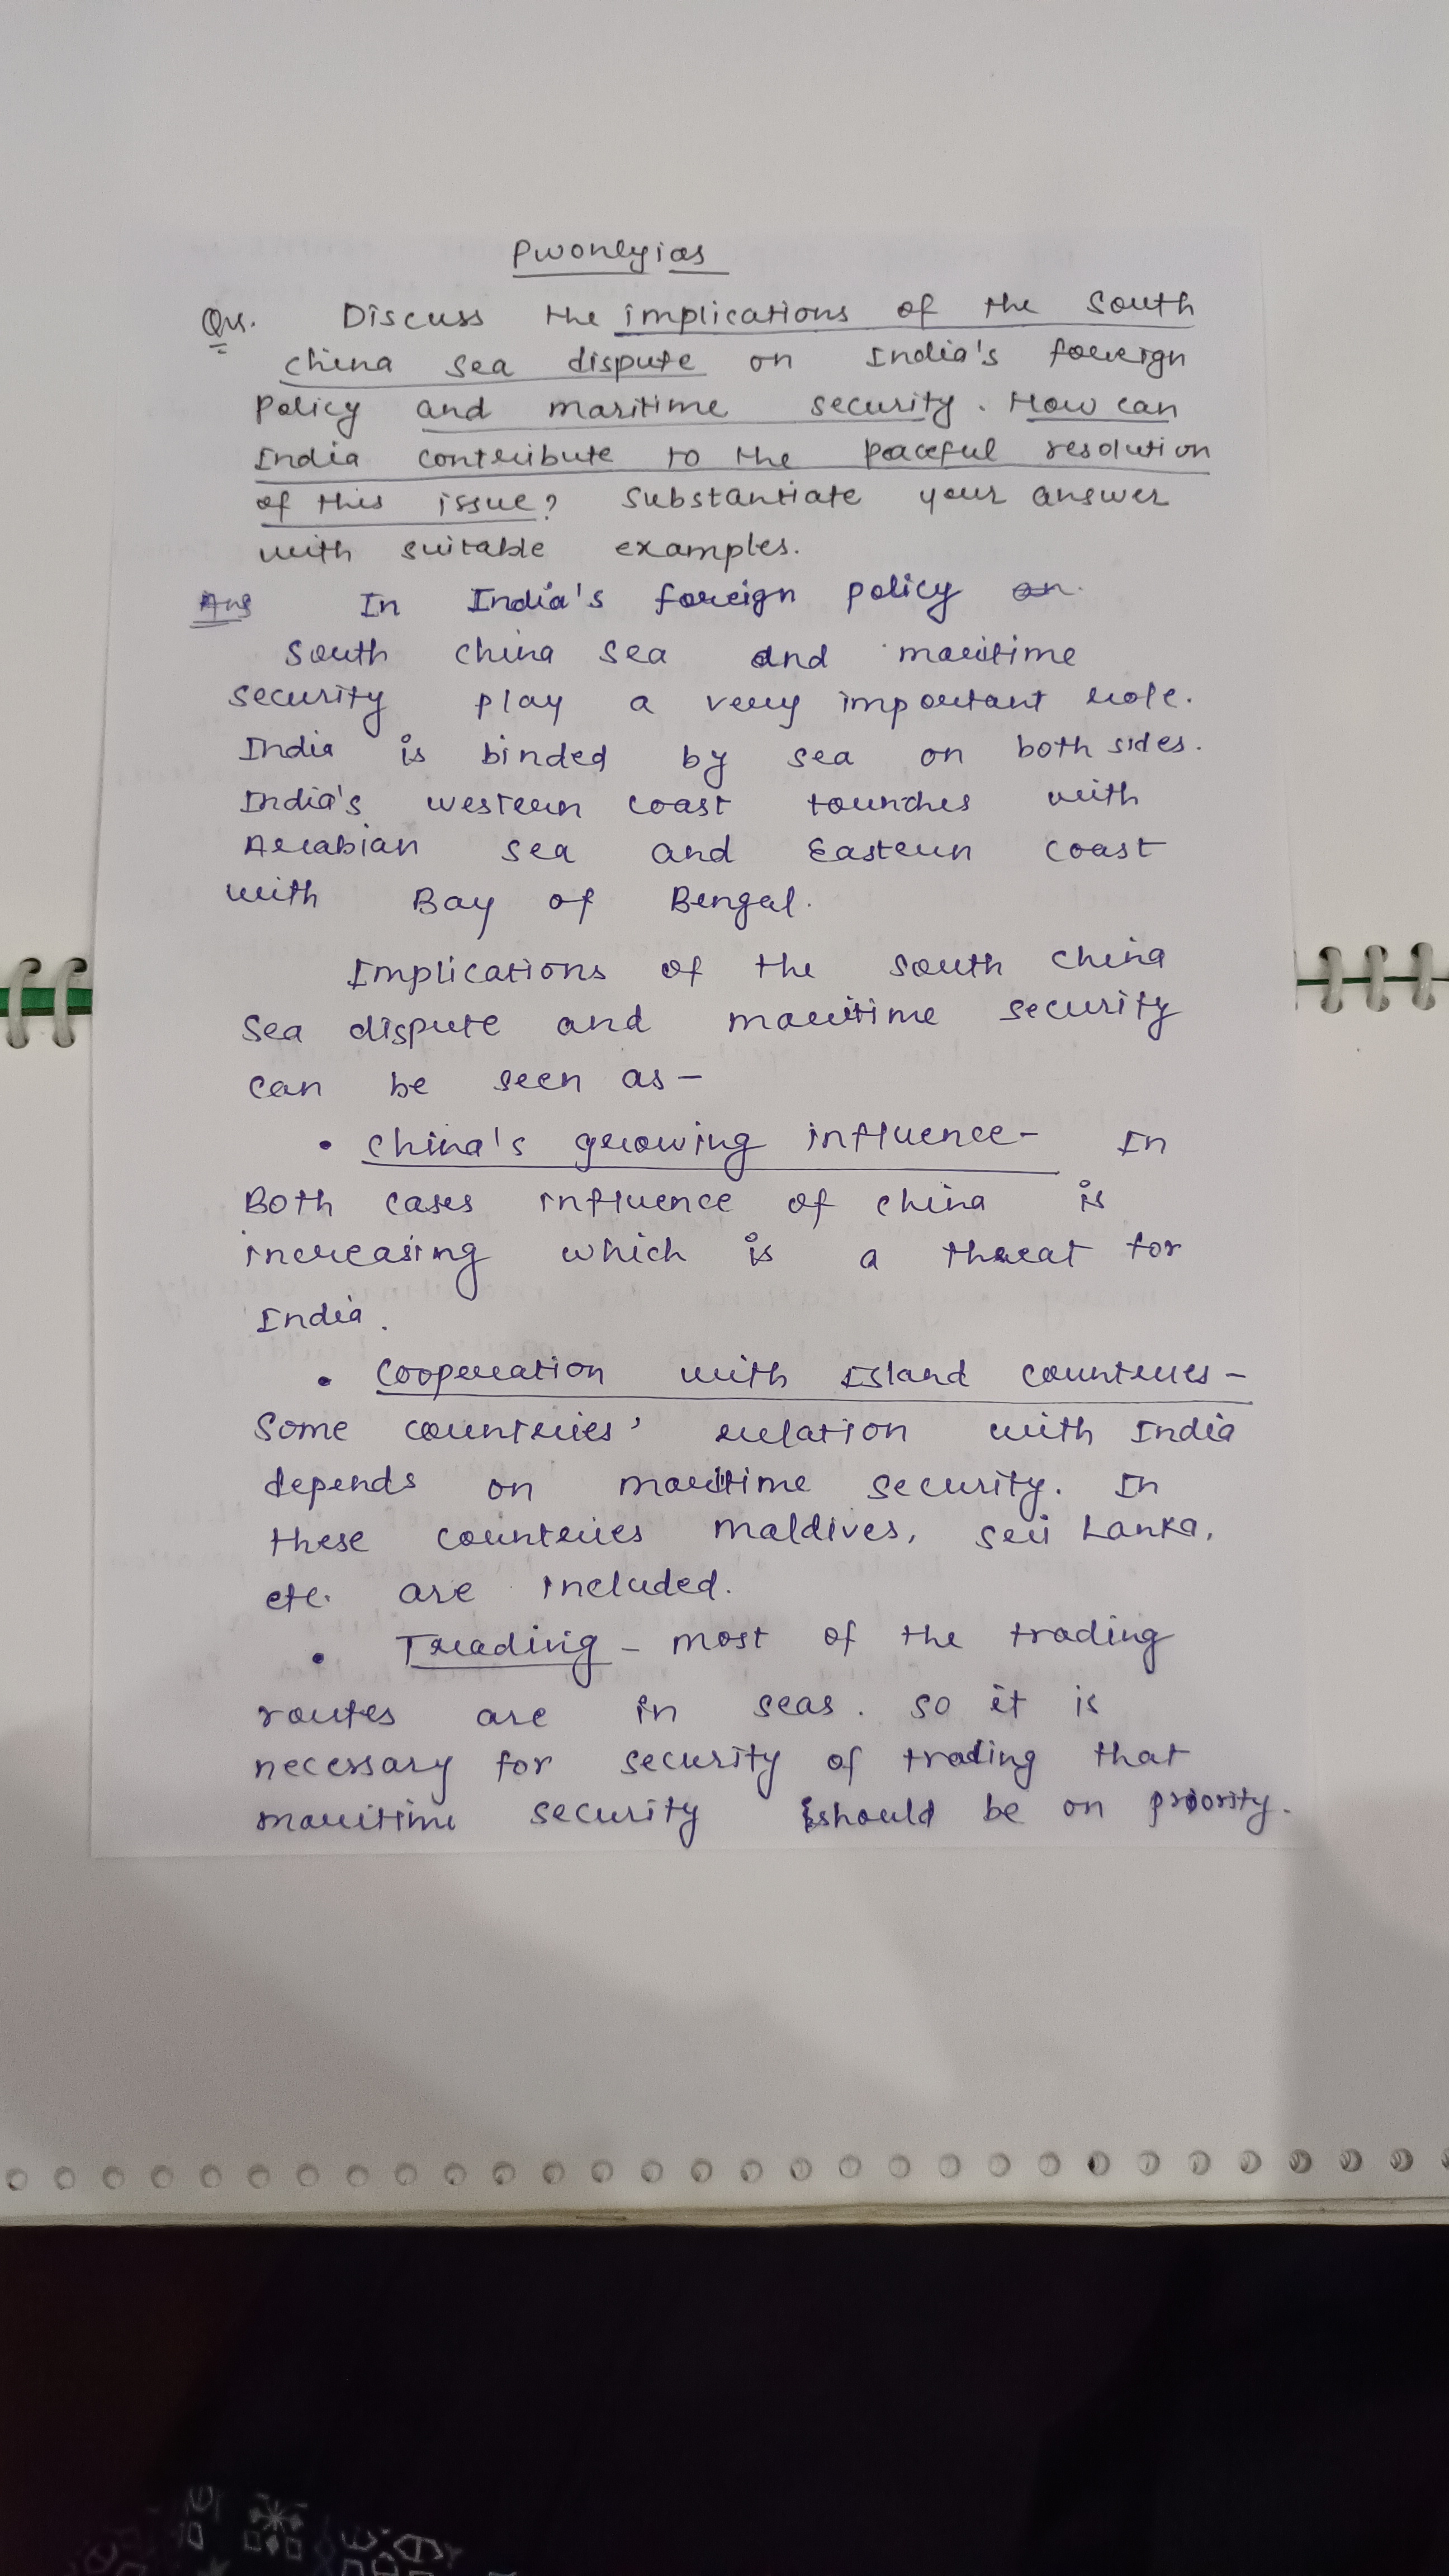 Pwonlyias
Qus. Discuss the implications of the South
china sea dispute on India's foreign
Policy and maritime security. How can
India contribute to the peaceful resolution
of this issue? Substantiate your answer
with suitable examples.
Ans In India's foreign policy on
South china sea and maritime
security play a very important role.
India is binded by sea on both sides.
India's western coast tounches with
Arabian sea and Eastern coast
with Bay of Bengal.
Implications of the south china
sea dispute and maritime security
can be seen as –
• china's growing influence – In
Both cases influence of china is
increasing which is a threat for
India.
• Cooperation with Island countries –
Some countries' relation with India
depends on maritime security. In
these countries maldives, Sri Lanka,
etc. are included.
• Trading – most of the trading
routes are in seas. so it is
necessary for security of trading that
maritime security should be on priority.